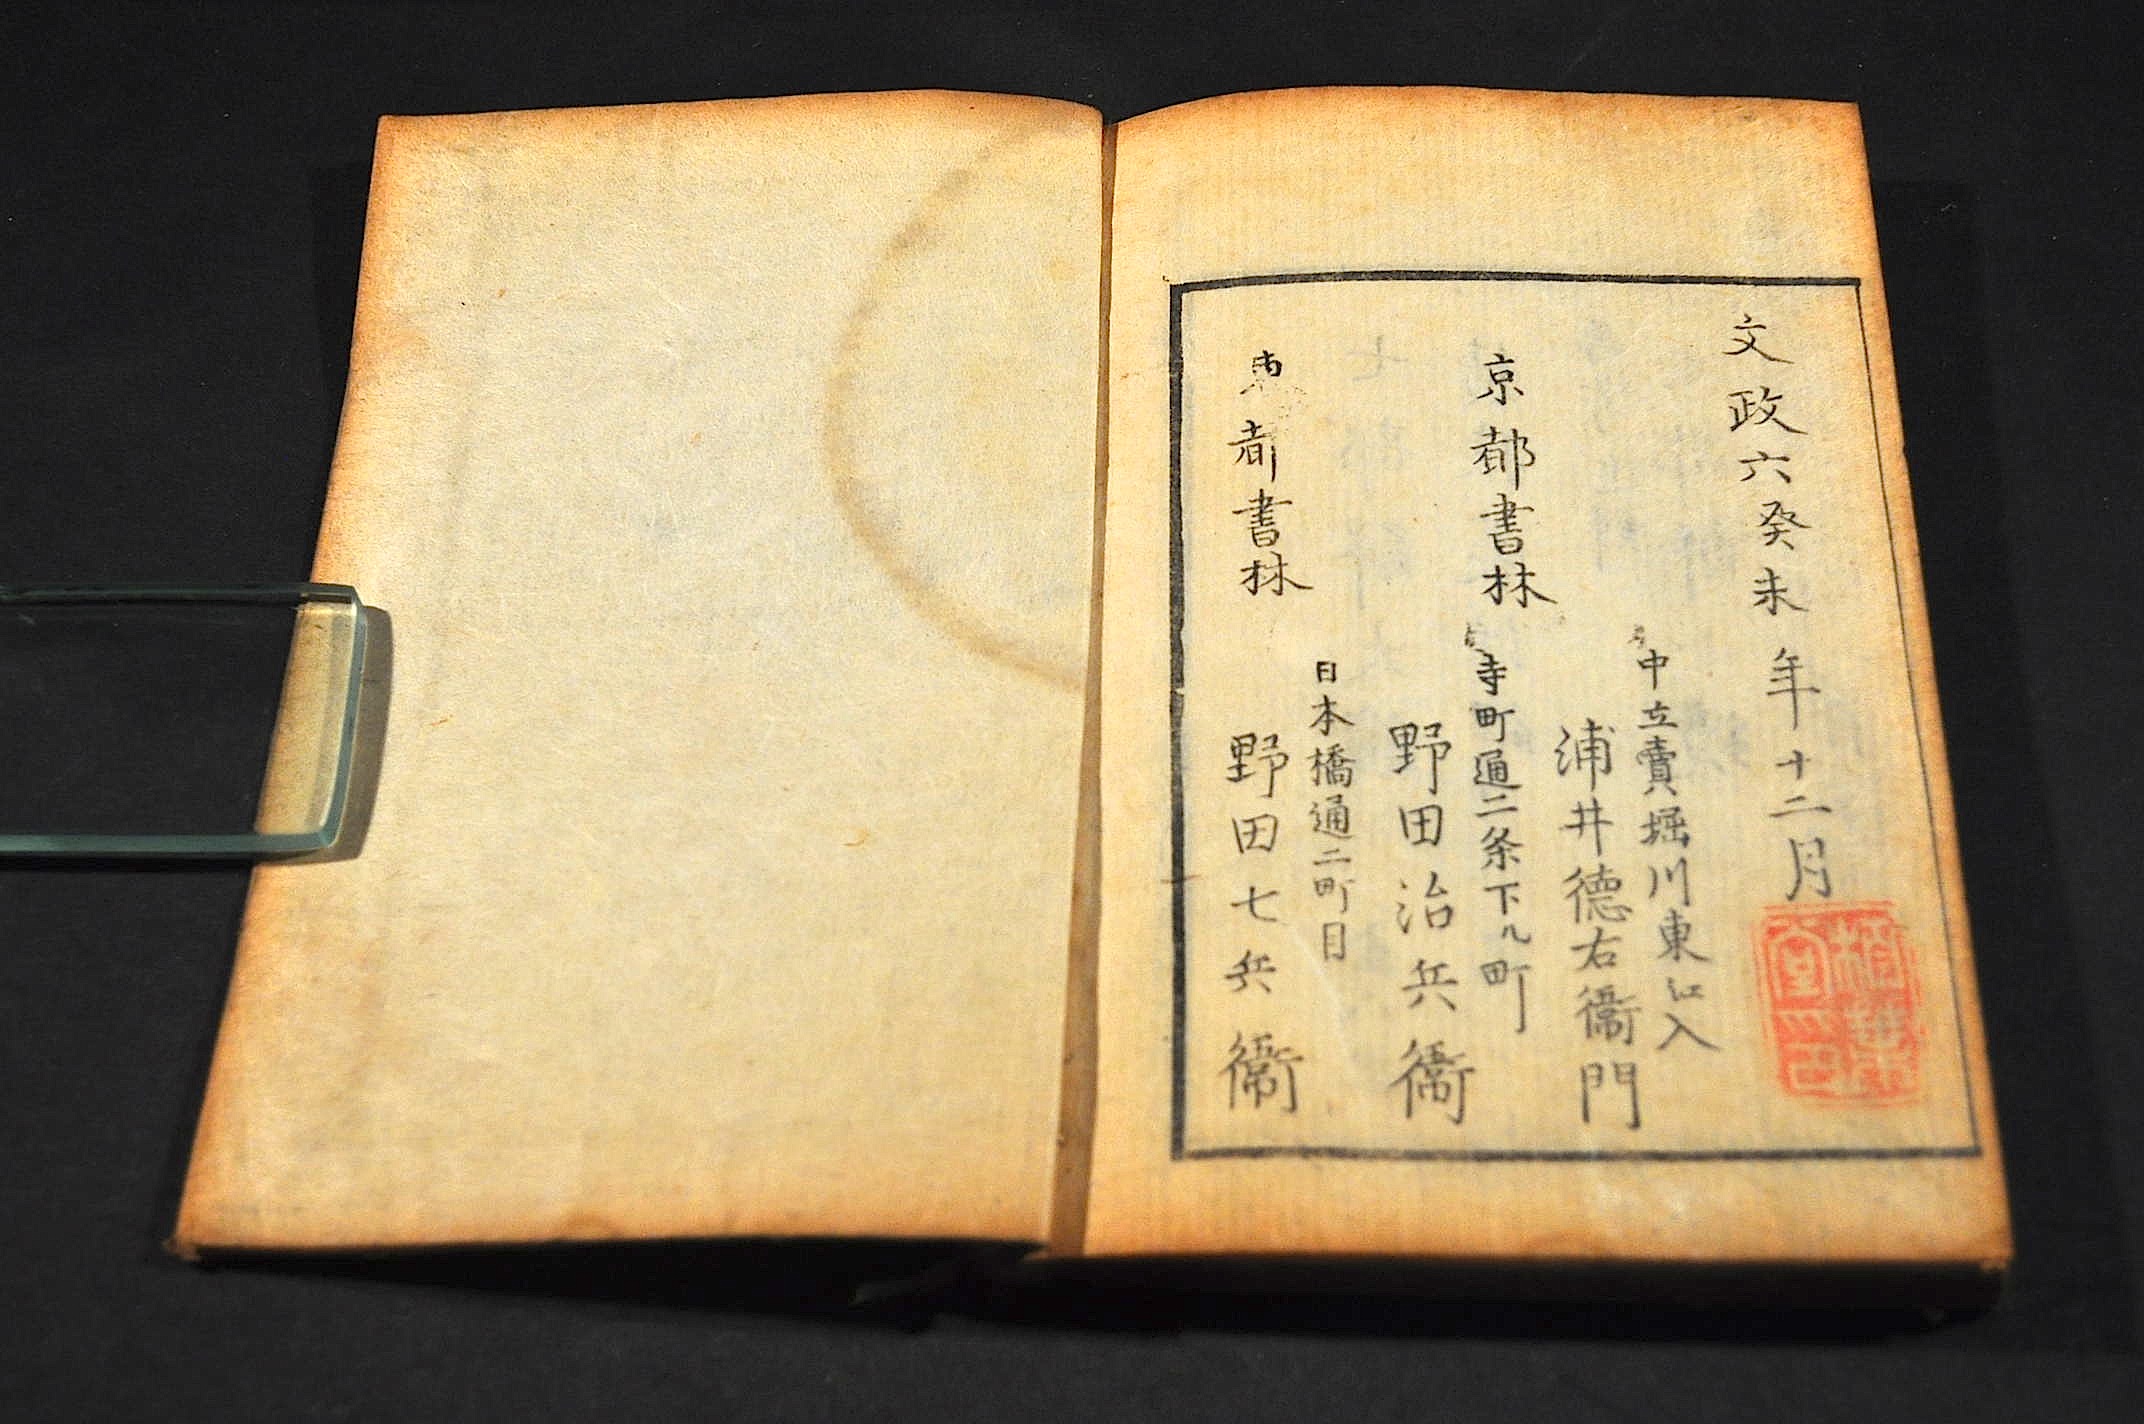 文政六癸未年十二月
中立賣堀川東江入
京都書林
浦井徳右衞門
寺町通二条下ル町
野田治兵衞
日本橋通二町目
東都書林
野田七兵衞